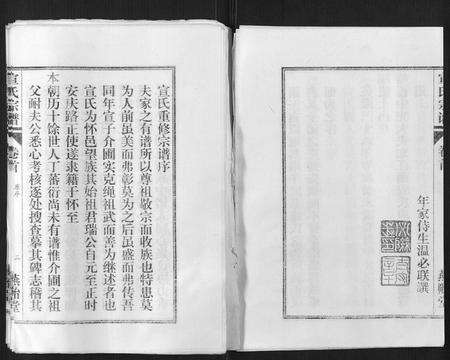 年家侍生温必联撰
宣氏宗谱
宣氏重修宗谱序
夫家之有谱所以尊祖敬宗而收族也特患莫
为人前虽美而弗彰莫为之后虽盛而弗传吾
同年宣子介圃实克绳祖武而善为继述者也
宣氏为怀邑望族其始祖君瑞公自元至正时
安庆路正使遂隶籍于怀至
本朝历十余世人丁蕃衍尚未有谱惟介圃之祖
父耐夫公悉心考核逐处搜查摹其碑志稽其
宣氏宗谱
卷首
二
燕怡堂